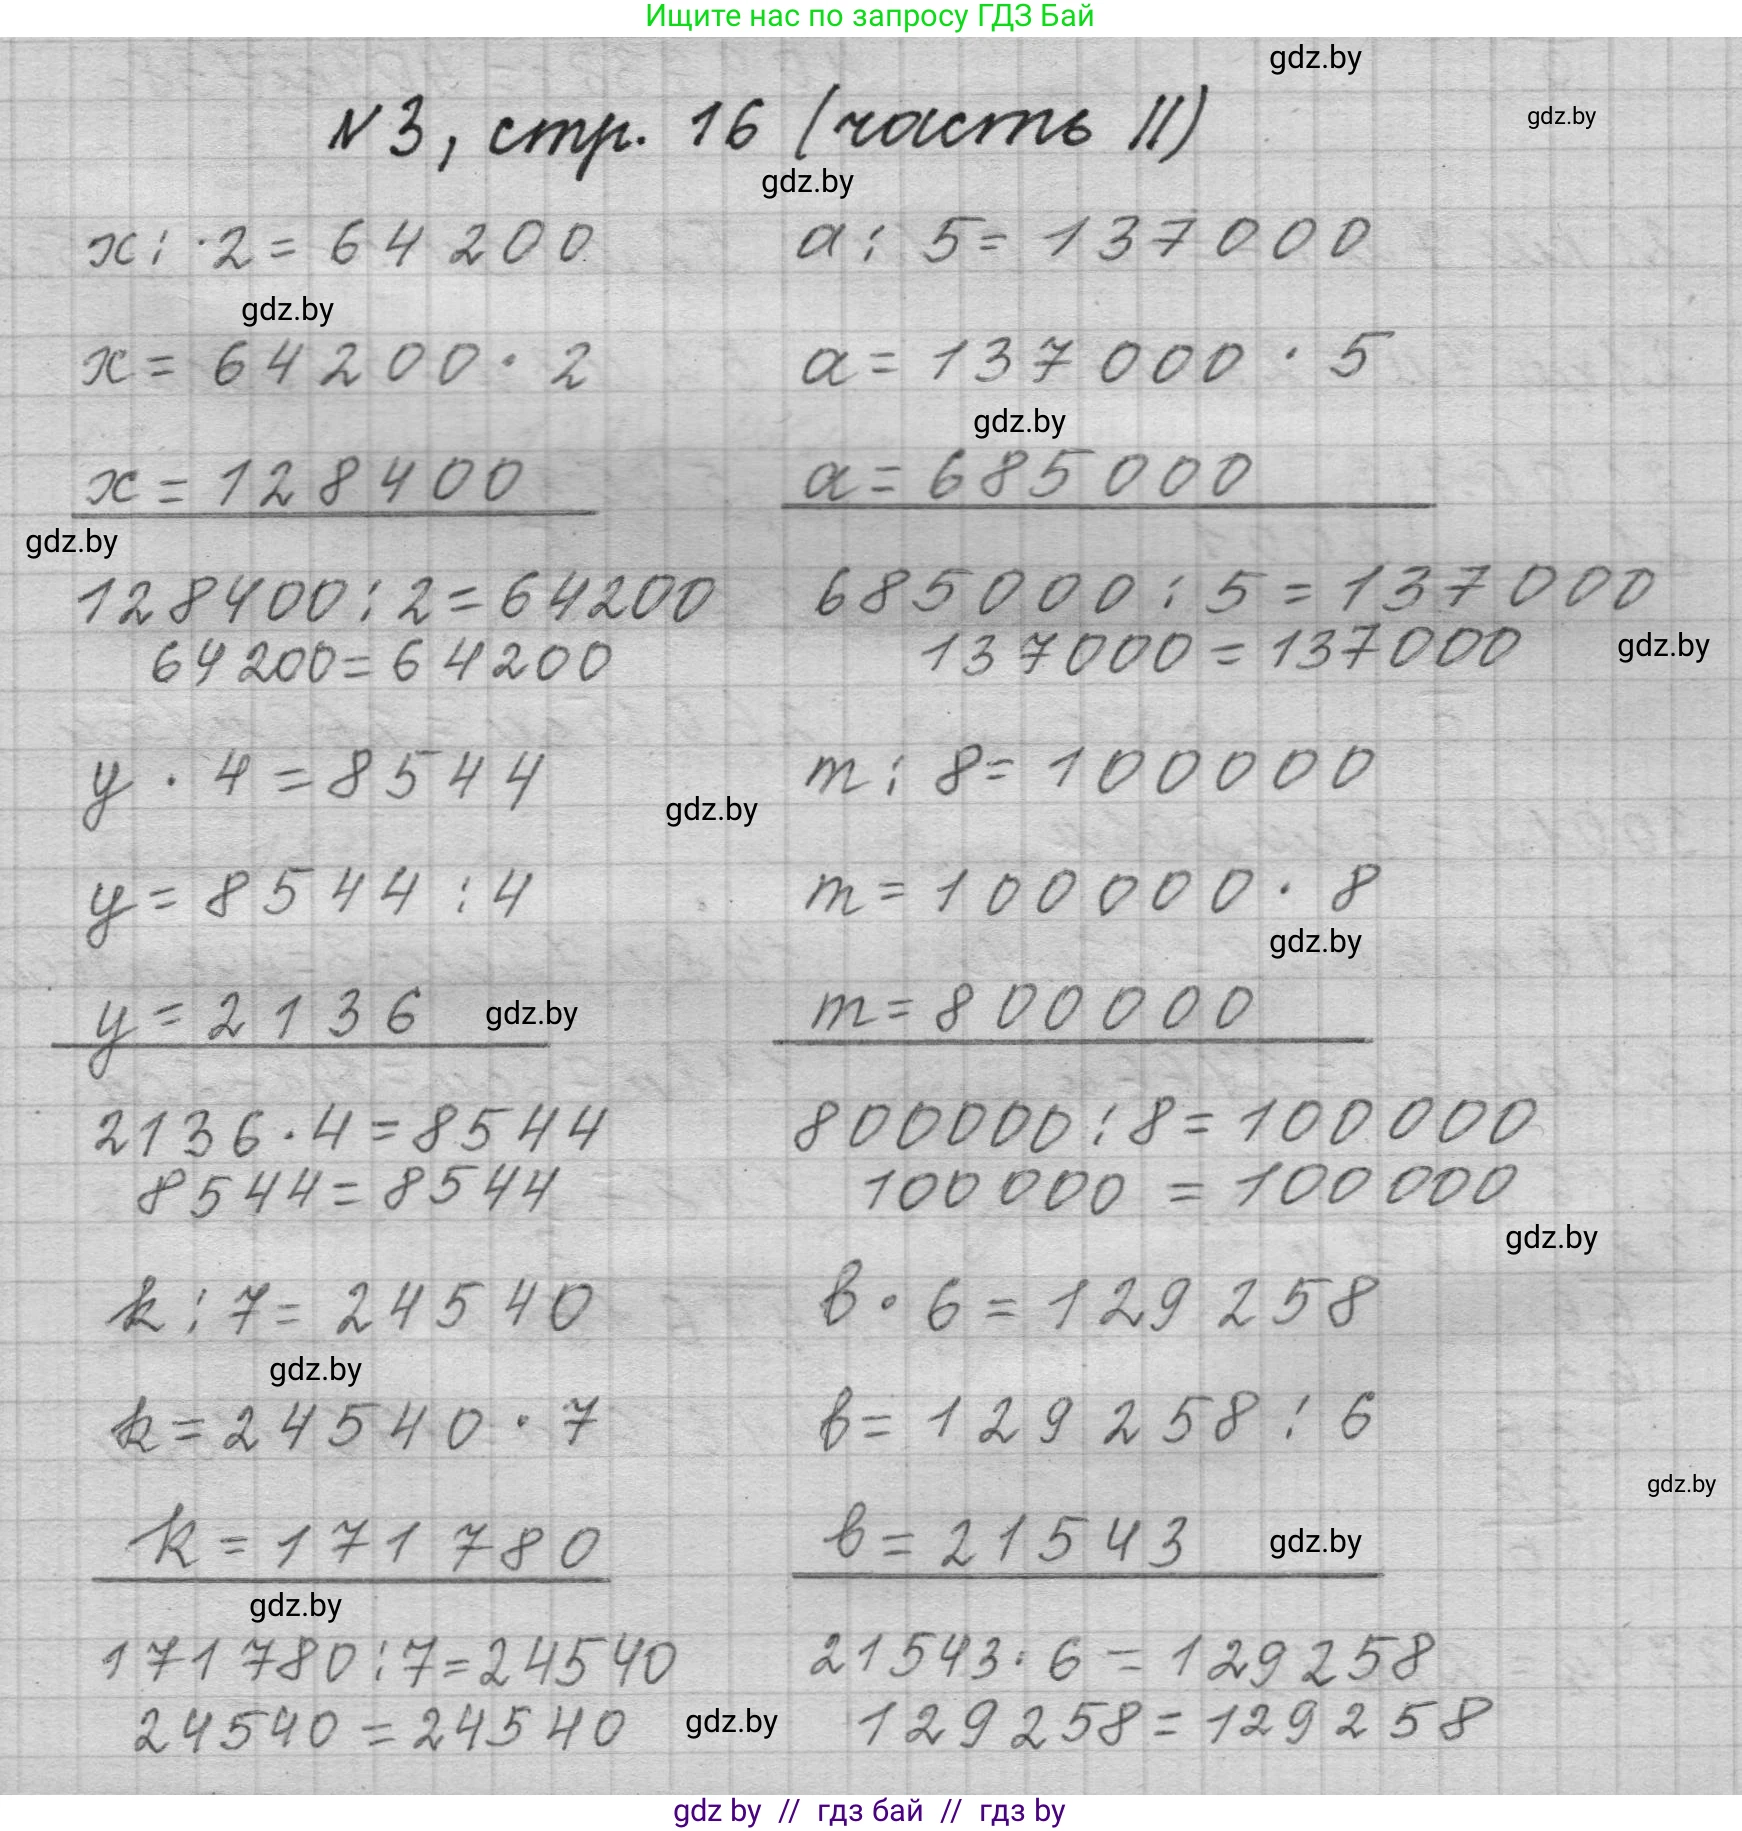 Ищите нас по запросу ГДЗ Бай
gdz.by
N3, стр. 16 (часть II)
gdz.by
gdz.by
x : · 2 = 64200
a : 5 = 137000
gdz.by
x = 64200 · 2
a = 137000 · 5
gdz.by
x = 128400
a = 685000
gdz.by
128400 : 2 = 64200
685000 : 5 = 137000
64200 = 64200
137000 = 137000
gdz.by
y · 4 = 8544
m : 8 = 100000
gdz.by
y = 8544 : 4
m = 100000 · 8
gdz.by
y = 2136
gdz.by
m = 800000
2136 · 4 = 8544
800000 : 8 = 100000
8544 = 8544
100000 = 100000
gdz.by
k : 7 = 24540
b · 6 = 129258
gdz.by
k = 24540 · 7
b = 129258 : 6
gdz.by
k = 171780
b = 21543
gdz.by
gdz.by
171780 : 7 = 24540
21543 · 6 = 129258
24540 = 24540
gdz.by
129258 = 129258
gdz by // гдз бай // гдз by